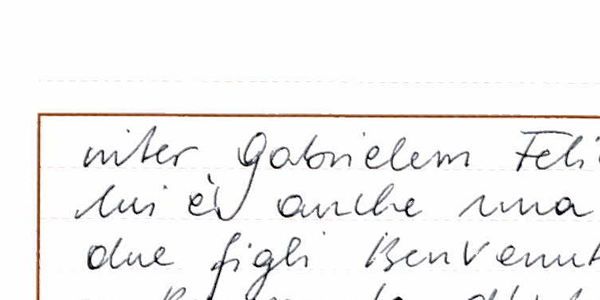 inter Gabrielem Feli
lui è anche una
due figli Benvenut